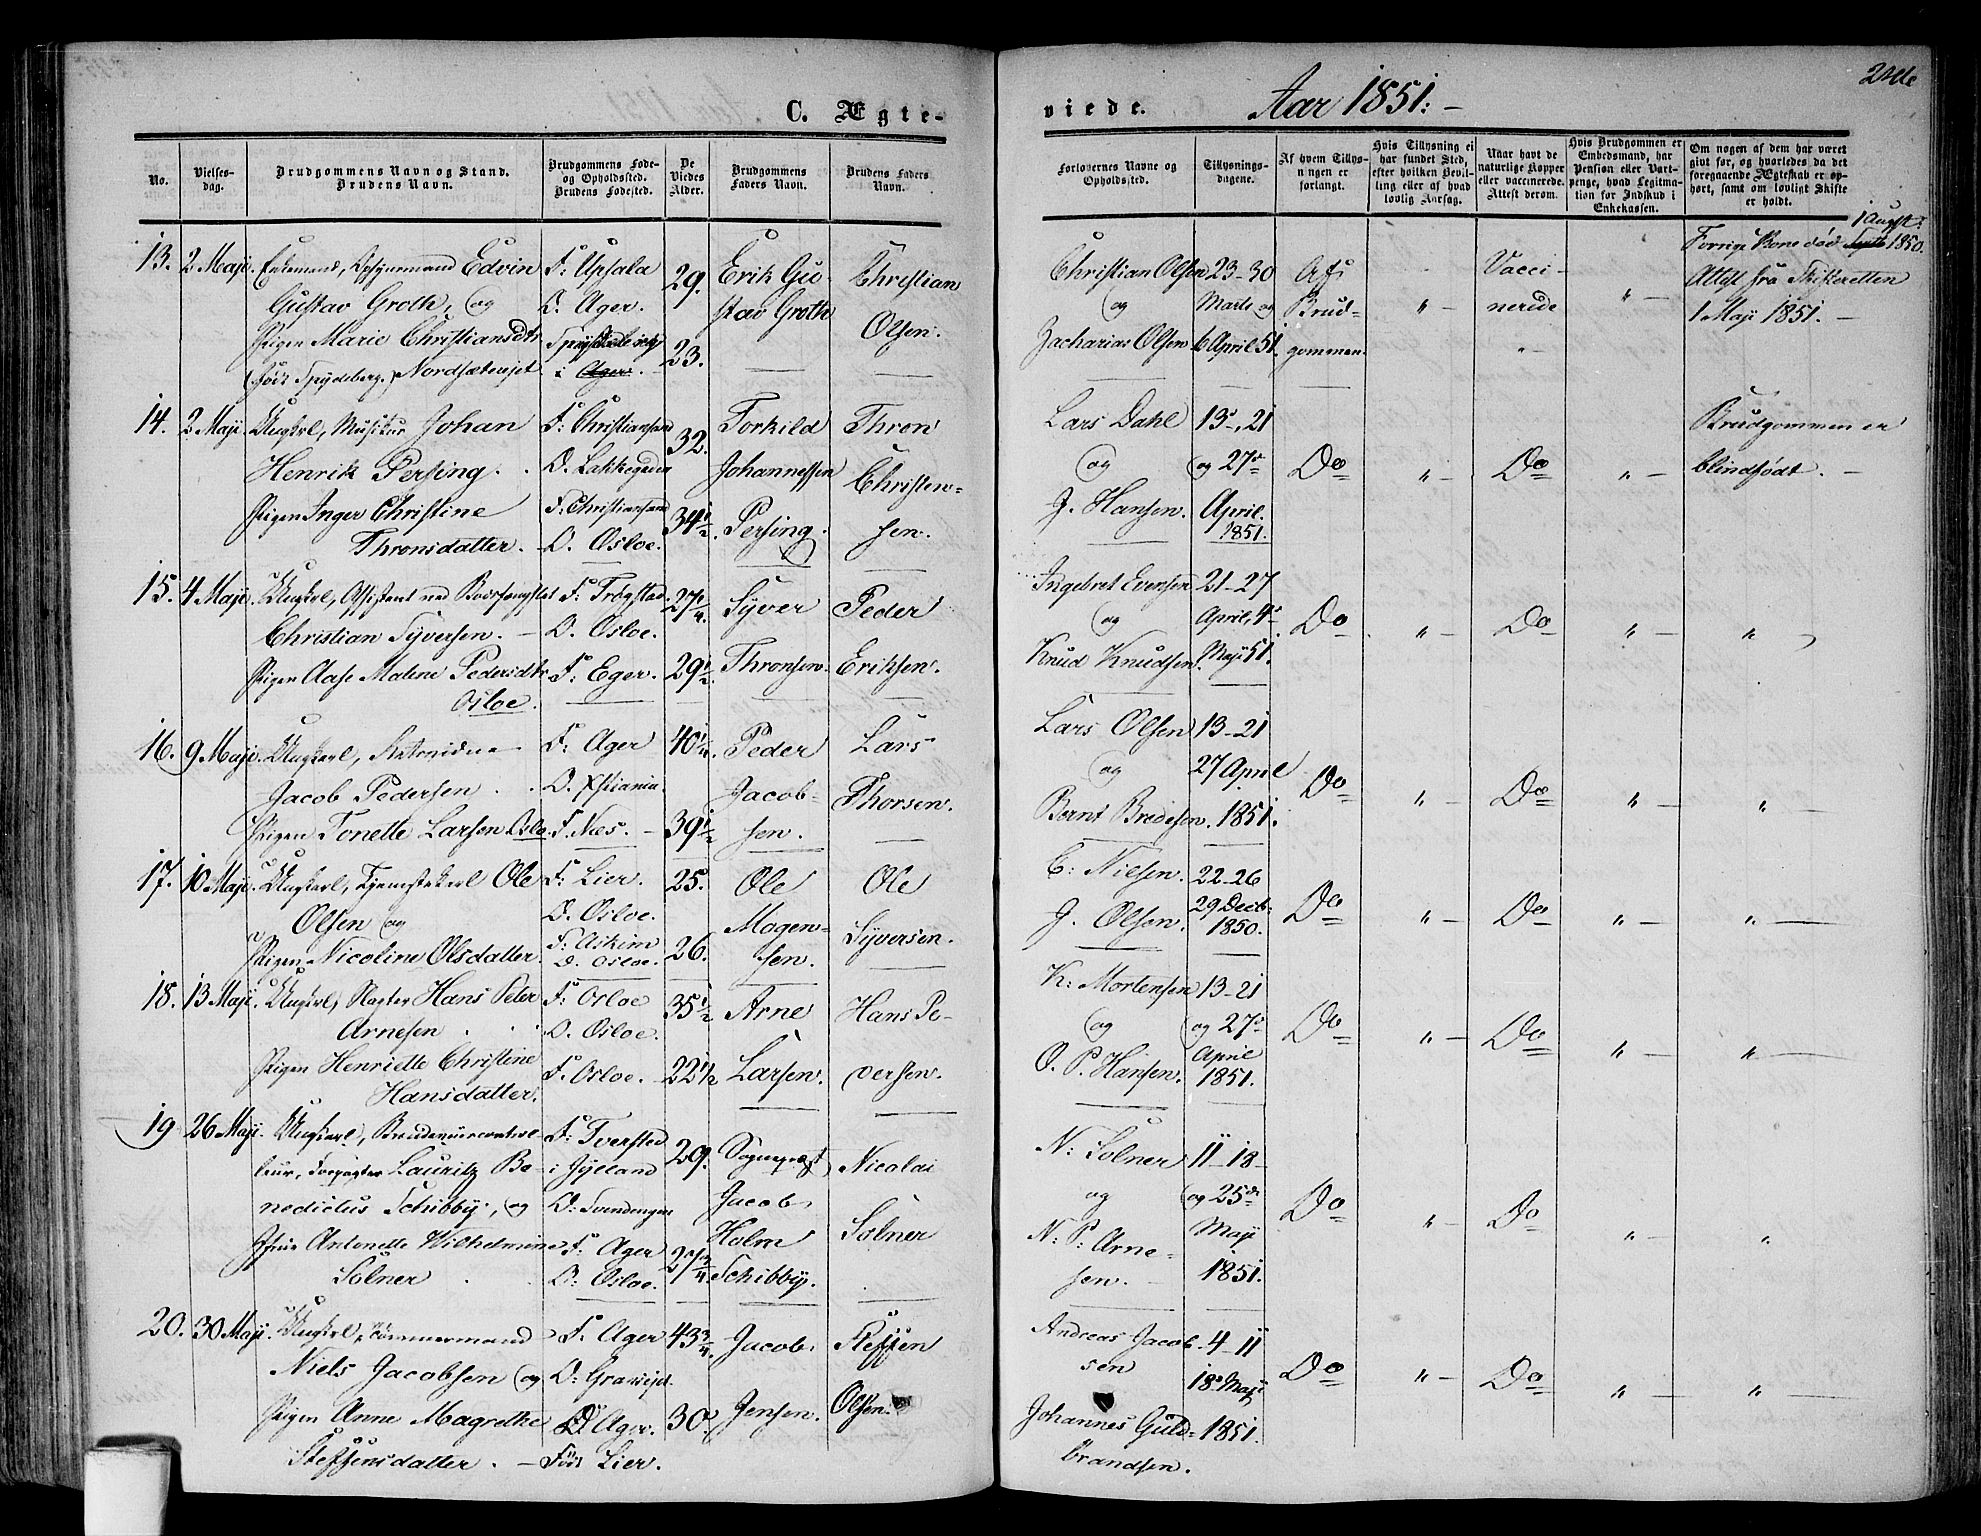 C. Ægte-
viede.
Aar 1851.-
No.
Vielses-
dag.
Brudgommens Navn og Stand.
Brudens Navn.
Brudgommens Føde-
og Opholdssted.
Brudens Fødested.
De
Viedes
Alder.
Brudgommens
Faders Navn.
Brudens Faders
Navn.
Forlovernes Navne og
Opholdssted.
Tillysnings-
dagene.
Af hvem Tillys-
ningen er
forlangt.
Hvis Tillysning ei
har fundet Sted,
efter hvilken Bevil-
ling eller af hvad
lovlig Aarsag.
Naar havt de
naturlige Kopper
eller vaccinerede.
Attest derom.
Hvis Brudgommen er
Embedsmand, har
Pension eller Vart-
penge, hvad Legitima-
tion for Indskud i
Enkekassen.
Om nogen af dem har været
givt før, og hvorledes da det
foregaaende Ægteskab er op-
hørt, samt om lovligt Skifte
er holdt.
13. 2 Maji. Enkemand, Edvin
Gustav Groth, og
Pigen Marie Christiansdtr
(født Spydeberg.) Nordsætevejet
F: Upsala
O. Ager.
Spydeberg
i Ager.
29.
23.
Erik Gu-
stav Groth
Christian
Olsen.
Christian Olsen
og
Zacharias Olsen
23-30
Marts og
6 April 51.
Af
Brud-
gommen.
" -
Vacci-
nerede
" -
1 Augst:
Forrige Kone død Septb 1850.
Attest fra Skifteretten
1 Maji 1851. -
14. 2 Maji. Ungkarl, Musikus Johan
Henrik Persing. .
Pigen Inger Christine
Thronsdatter.
F: Christiansand
O. Lakkegaden
F. Christiansand
O. Osloe.
32.
34 1/2.
Torkild
Johannessen
Persing.
Thron
Christen-
sen.
Lars Dahl
og
J. Hansen.
13-, 21
og 27de
April.
1851.
Do
" -
Do
" -
Brudgommen er
blindfødt. -
15. 4 Maji. Ungkarl, Assistent ved Bodsfengslet
Christian Syversen. -
Pigen Aase Malene Pedersdtr.
Osloe.
F: Trøgstad.
O. Osloe.
F: Eger.
27 1/4.
29 1/2.
Syver
Thronsen.
Peder
Eriksen.
Ingebret Evensen
og
Knud Knudsen.
21-27
April, 4de
Maji 51.
Do
" -
Do
" -
"
16. 9 Maji. Ungkarl,
Jacob Pedersen . .
Pigen Tonette Larsen Oslo.
F: Ager
O. Xstiania.
F. Næs. -
40 1/4.
39 1/2
Peder
Jacob-
sen.
Lars
Thorsen.
Lars Olsen
og
Bernt Bredesen.
13-21
27 April
1851.
Do
" -
Do
" -
" -
17. 10 Maji. Ungkarl, Ole
Olsen og
Pigen Nicoline Olsdatter.
F: Lier.
O. Osloe.
F: Askim
O. Osloe.
25.
26.
Ole
Mogen-
sen.
Ole
Syversen.
C: Nielsen.
J. Olsen.
22-26
29 Decb:
1850.
Do
" -
Do
" -
" -
18. 13 Maji. Ungkarl, Hans Peter
Arnesen . .
Pigen Henriette Christine
Hansdatter.
F: Osloe
O. Osloe.
F. Osloe.
35 1/2
22 1/2
Arne
Larsen.
Hans Pe-
dersen.
K: Mortensen
og
O. P. Hansen.
13-21
og 27de
April
1851.
Do
" -
Do
" -
" -
19 26 Maji. Ungkarl, Brændeviinscontrol-
leur, Lauritz Be-
nedictus Schibbÿ, og
Jfru Antonette Wilhelmine
Solner .
F: Tversted
i Jylland
O: Svendengen
F. Ager
O: Osloe.
29.
27 3/4.
Sognepræst
Jacob
Holm
Schibbÿ.
Nicolai
Solner
N: Solner
og
N: P: Arne-
sen.
11-18-
og 25de
Maji
1851.
Do
" -
Do
" -
"
20. 30 Maji. Ungkarl, Tømmermand
Niels Jacobsen og
Pigen Anne Magrethe
Steffensdatter. -
F. Ager
O: Grønvejet.
O: Ager.
Født Lier.
43 3/4.
30.
Jacob
Jensen.
Steffen
Olsen.
Andreas Jacob-
sen
Johannes Guld-
brandsen.
4-11
18de Maji
1851.
Do
" -
Do
" -
" -